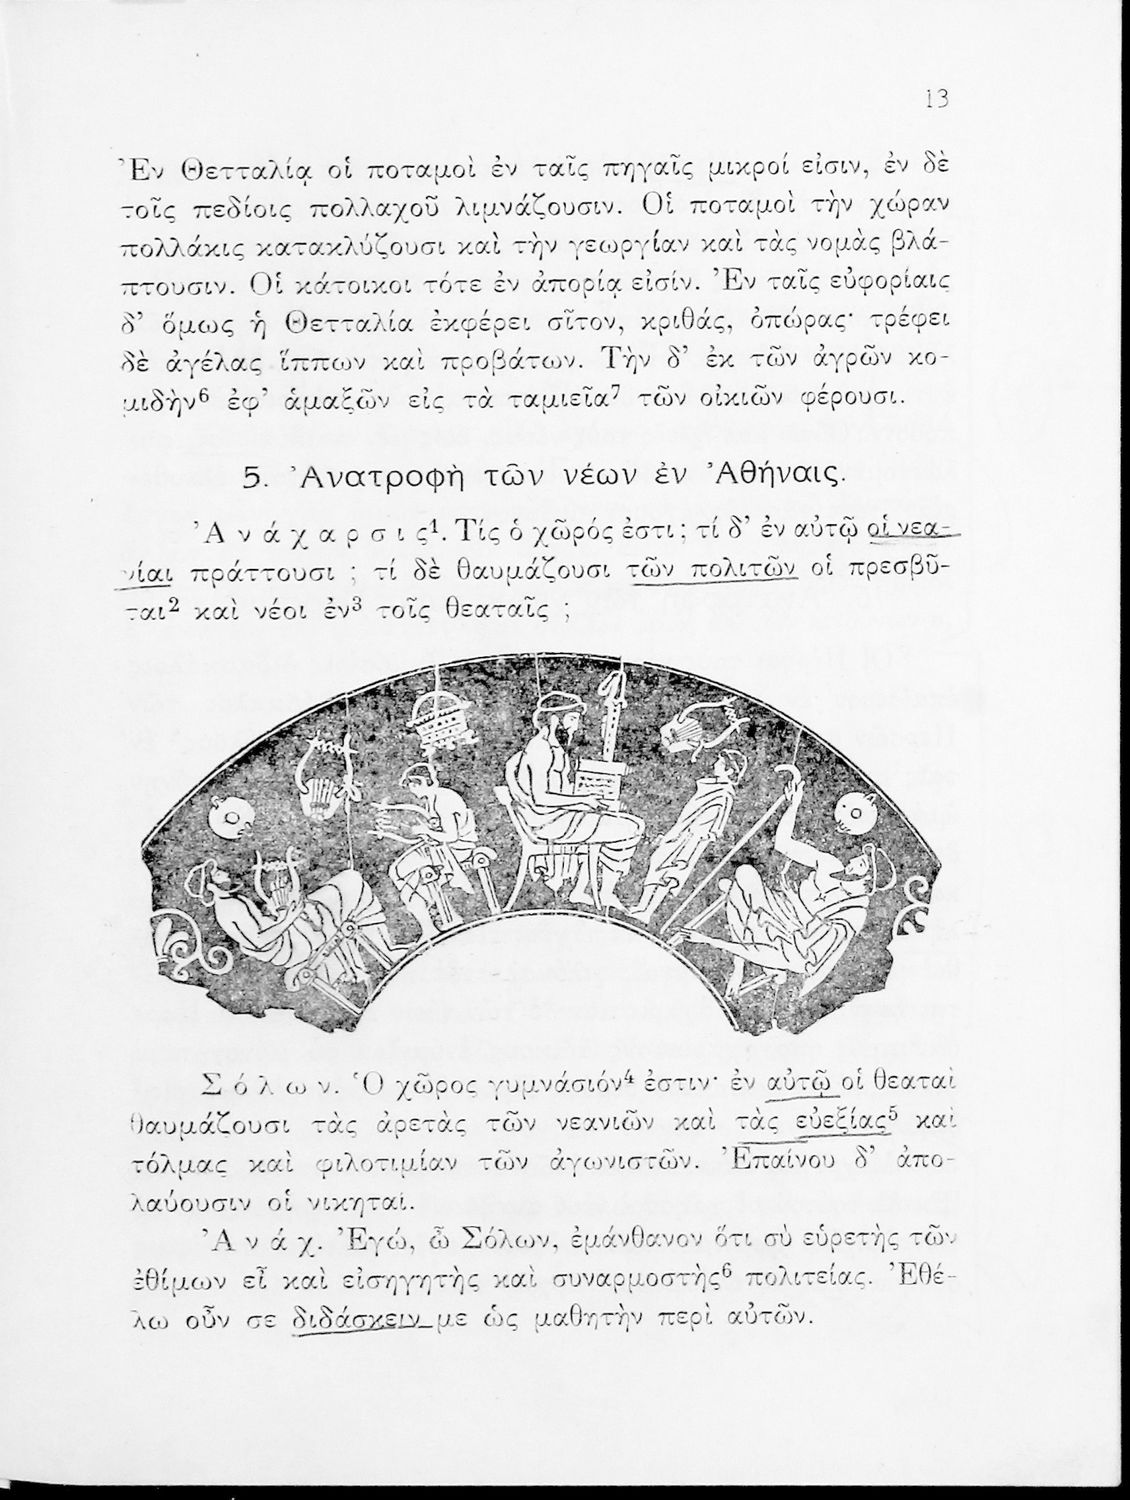 13
Ἐν Θετταλίᾳ οἱ ποταμοὶ ἐν ταῖς πηγαῖς μικροί εἰσιν, ἐν δὲ
τοῖς πεδίοις πολλαχοῦ λιμνάζουσιν. Οἱ ποταμοὶ τὴν χώραν
πολλάκις κατακλύζουσι καὶ τὴν γεωργίαν καὶ τὰς νομὰς βλά-
πτουσιν. Οἱ κάτοικοι τότε ἐν ἀπορίᾳ εἰσίν. Ἐν ταῖς εὐφορίαις
δ’ ὅμως ἡ Θετταλία ἐκφέρει σῖτον, κριθάς, ὀπώρας· τρέφει
δὲ ἀγέλας ἵππων καὶ προβάτων. Τὴν δ’ ἐκ τῶν ἀγρῶν κο-
μιδὴν⁶ ἐφ’ ἁμαξῶν εἰς τὰ ταμιεῖα⁷ τῶν οἰκιῶν φέρουσι.
5. Ἀνατροφὴ τῶν νέων ἐν Ἀθήναις.
Ἀνάχαρσις¹. Τίς ὁ χῶρός ἐστι; τί δ’ ἐν αὐτῷ οἱ νεα-
νίαι πράττουσι ; τί δὲ θαυμάζουσι τῶν πολιτῶν οἱ πρεσβῦ-
ται² καὶ νέοι ἐν³ τοῖς θεαταῖς ;
Σόλων. Ὁ χῶρος γυμνάσιόν⁴ ἐστιν· ἐν αὐτῷ οἱ θεαταὶ
θαυμάζουσι τὰς ἀρετὰς τῶν νεανιῶν καὶ τὰς εὐεξίας⁵ καὶ
τόλμας καὶ φιλοτιμίαν τῶν ἀγωνιστῶν. Ἐπαίνου δ’ ἀπο-
λαύουσιν οἱ νικηταί.
Ἀνάχ. Ἐγώ, ὦ Σόλων, ἐμάνθανον ὅτι σὺ εὑρετὴς τῶν
ἐθίμων εἶ καὶ εἰσηγητὴς καὶ συναρμοστὴς⁶ πολιτείας. Ἐθέ-
λω οὖν σε διδάσκειν με ὡς μαθητὴν περὶ αὐτῶν.